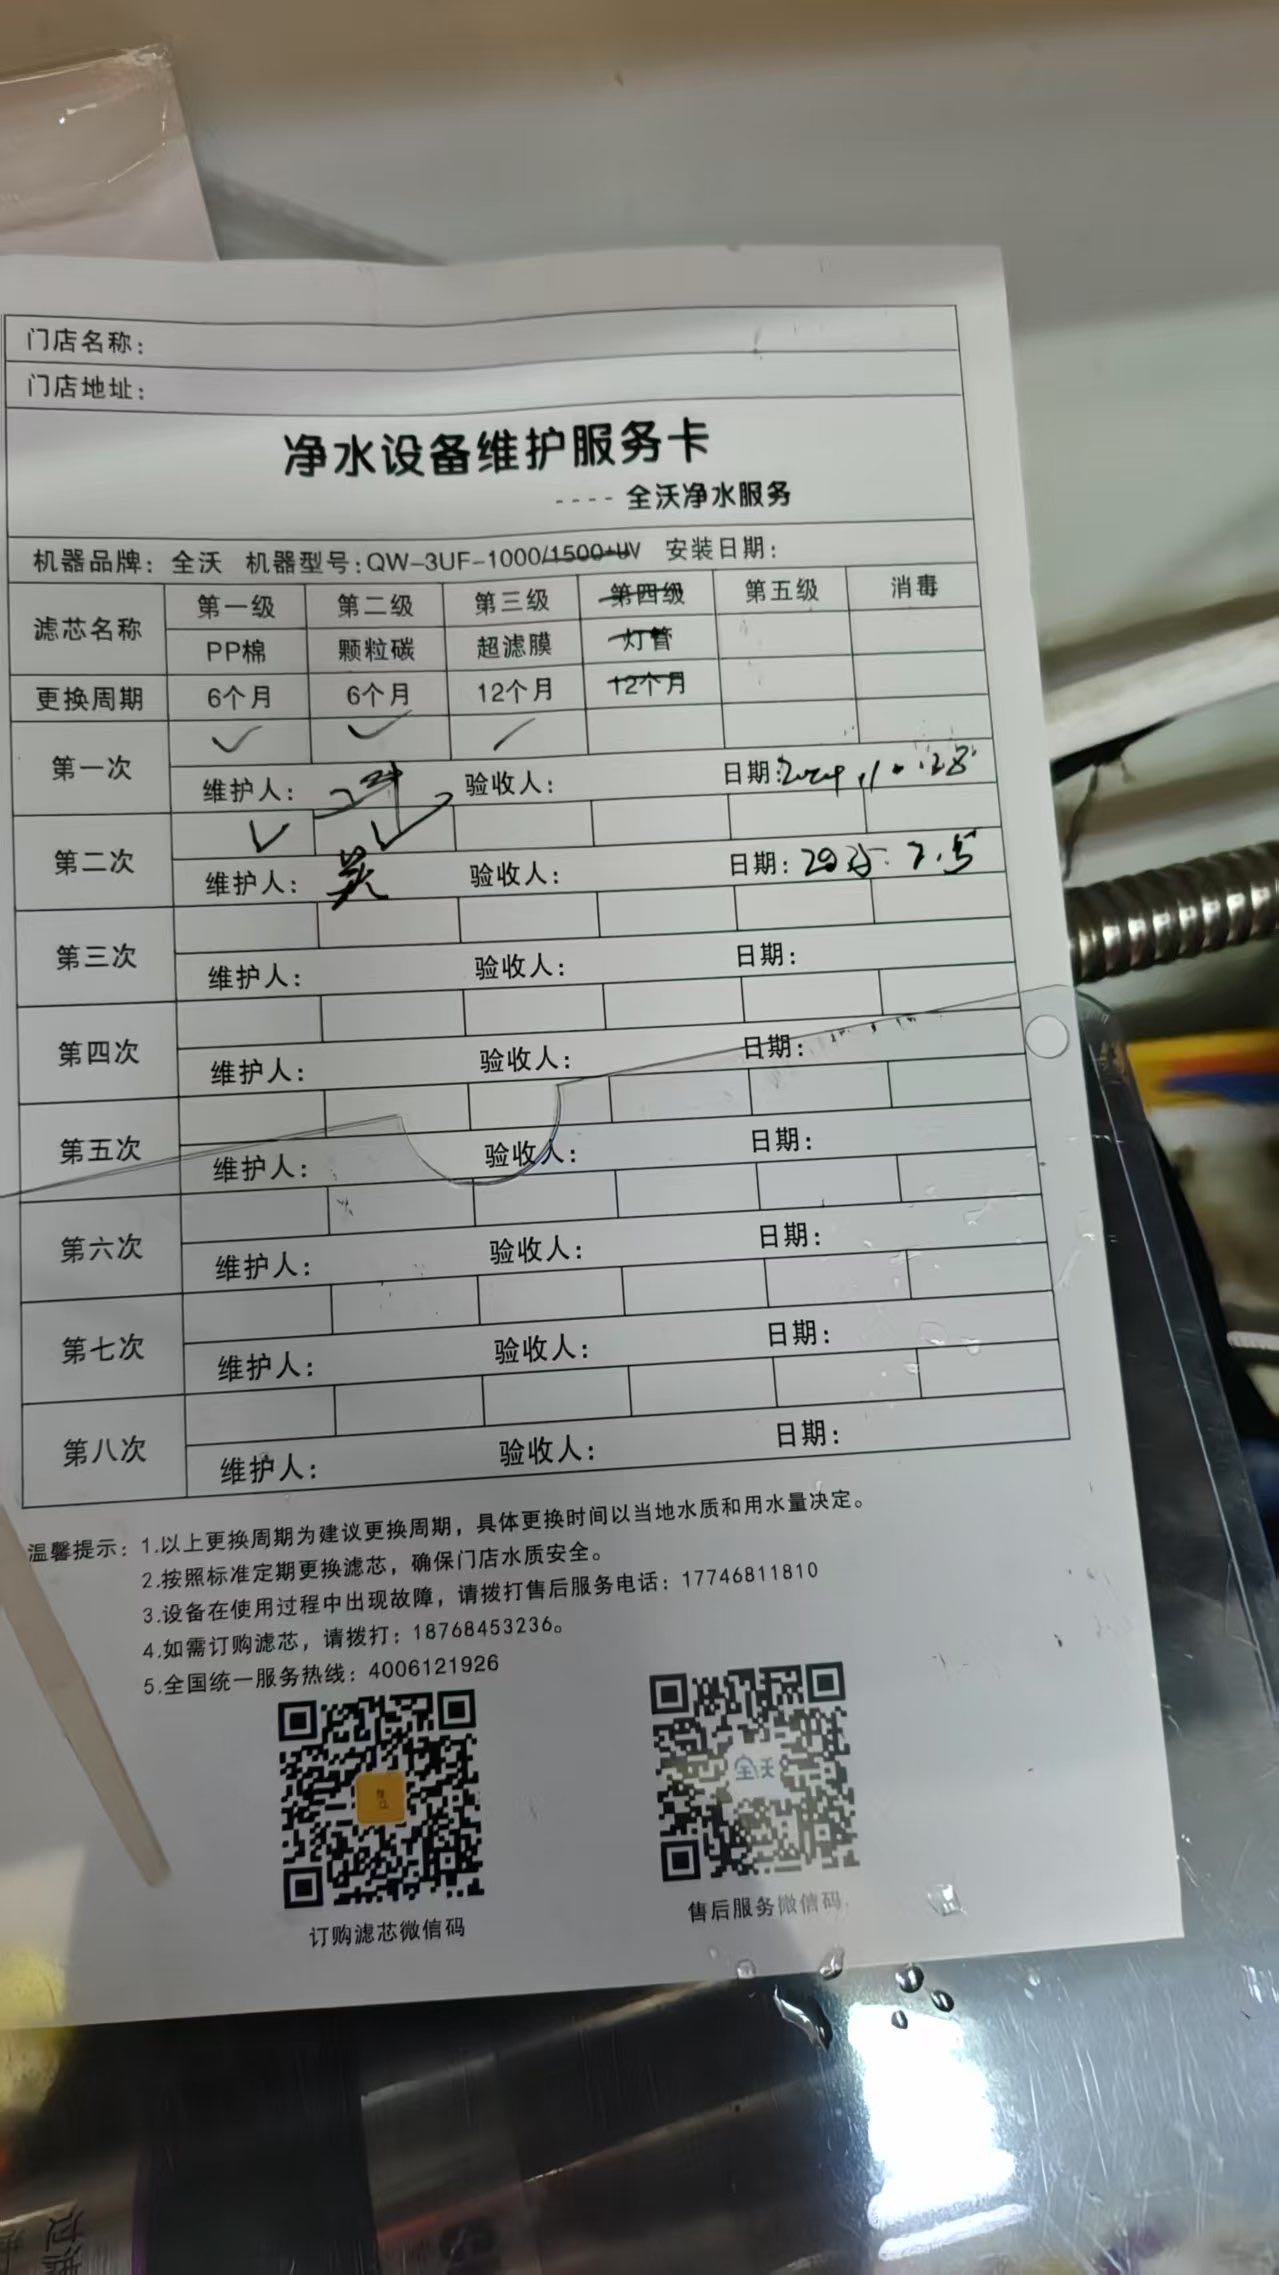 门店名称：
门店地址：
净水设备维护服务卡
---- 全沃净水服务
机器品牌：全沃 机器型号:QW-3UF-1000/1500+UV 安装日期：
滤芯名称 第一级 第二级 第三级 第四级 第五级 消毒
PP棉 颗粒碳 超滤膜 灯管
更换周期 6个月 6个月 12个月 12个月
第一次 ✓ ✓ ✓
维护人： 验收人： 日期:2024.11.28
第二次 ✓ ✓
维护人：吴 验收人： 日期：2025.7.5
第三次
维护人： 验收人： 日期：
第四次
维护人： 验收人： 日期：
第五次
维护人： 验收人： 日期：
第六次
维护人： 验收人： 日期：
第七次
维护人： 验收人： 日期：
第八次
维护人： 验收人： 日期：
温馨提示：1.以上更换周期为建议更换周期，具体更换时间以当地水质和用水量决定。
2.按照标准定期更换滤芯，确保门店水质安全。
3.设备在使用过程中出现故障，请拨打售后服务电话：17746811810
4.如需订购滤芯，请拨打：18768453236。
5.全国统一服务热线：4006121926
全沃
订购滤芯微信码
售后服务微信码